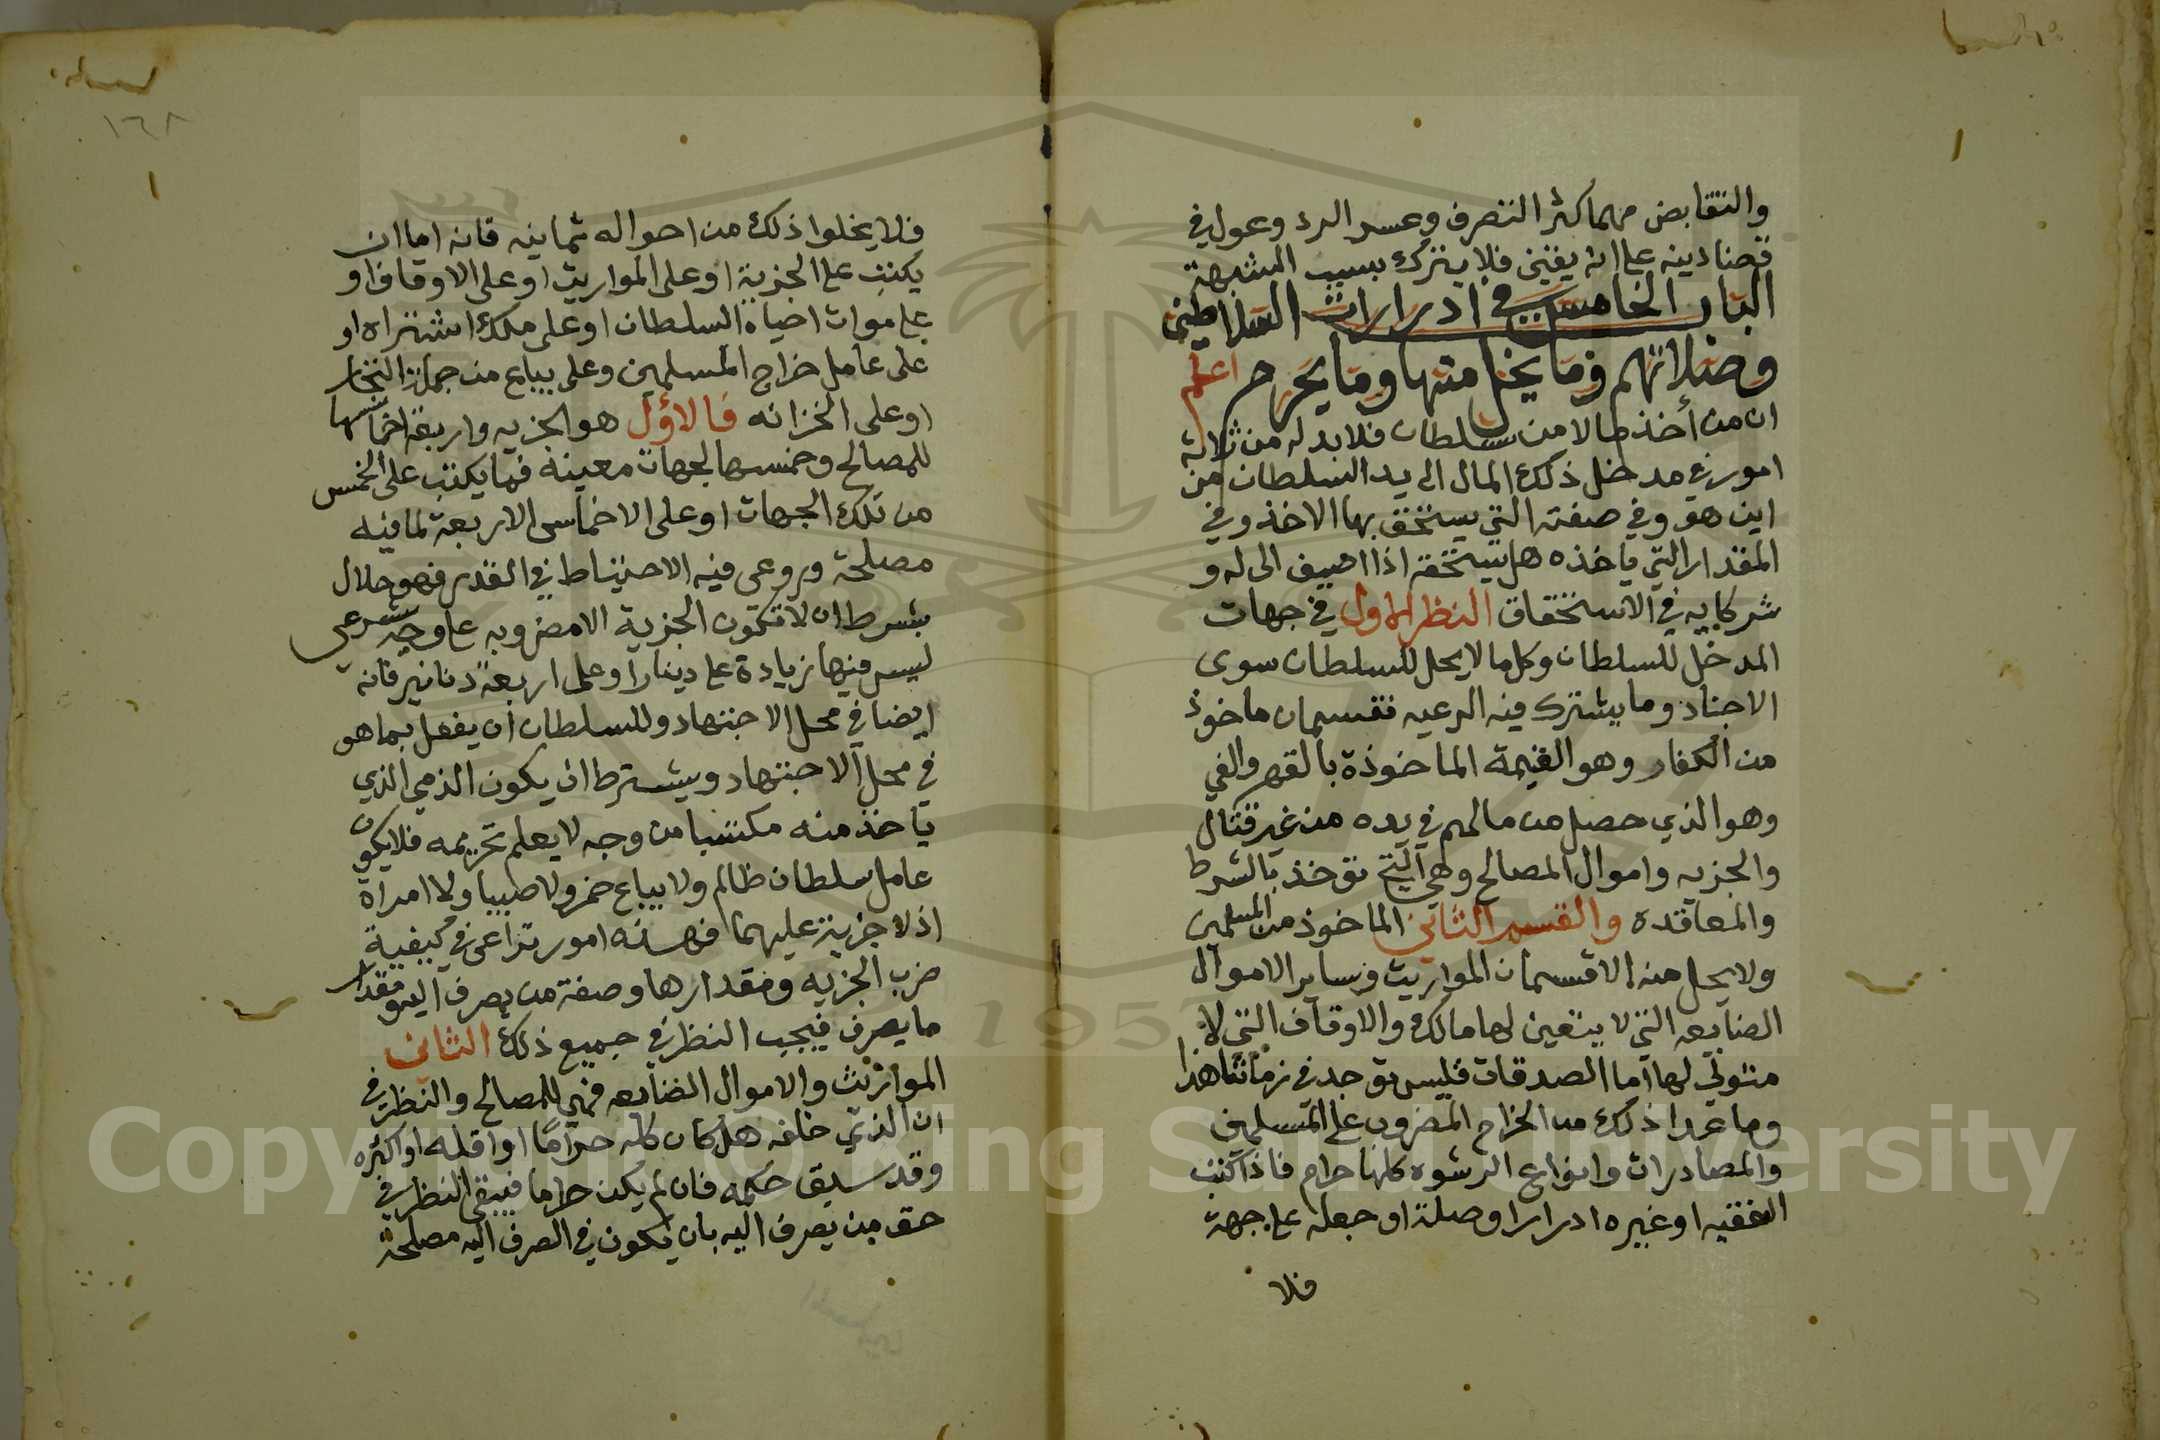 والتقابض مهما كثر التصرف وعسر الرد وعول في
قضا دينه على انه يقتني فلا يترك بسبب الشبهة
الباب الخامس في ادرارات السلاطين
وصلاتهم وما يحل منها وما يحرم اعلم
ان من أخذ مالا من سلطان فلا بد له من ثلاثة
امور في مدخل ذلك المال الى يد السلطان من
اين هو وفي صفته التي يستحق بها الاخذ وفي
المقدار التي ياخذه هل يستحقه اذا اضيف الى له و
شركايه في الاستحقاق النظر الاول في جهات
المدخل للسلطان وكل ما لا يحل للسلطان سوى
الاجناد وما يشترك فيه الرعيه نقسمان ماخوذ
من الكفار وهو الغنيمة الماخوذة بالقهر والفي
وهو الذي حصل من مالهم في يده من غير قتال
والجزيه واموال المصالح وهي التي توخذ بالشرط
والمعاقدة والقسم الثاني الماخوذ من المسلمين
ولا يحل منه الا قسمان المواريث وساير الاموال
الضايعه التي لا يتعين لها مالك والاوقاف التي لا
متولي لها اما الصدقات فليس توجد في زماننا هذا
وما عدا ذلك من الخراج المضروب على المسلمين
والمصادرات وانواع الرشوه كلها حرام فاذا كتب
الفقيه او غيره ادرارا وصلة او جعله على جهة
فلا
١٦٨
فلا يخلوا ذلك من احواله ثمانيه فانه اما ان
يكتب على الجزية او على المواريث او على الاوقاف او
على موات احياه السلطان او على ملك اشتراه او
على عامل خراج المسلمين وعلى بياع من جملة التجار
او على الخزانه فالاول هو الجزيه واربعة اخماسها
للمصالح وخمسها لجهات معينة فما يكتب على الخمس
من تلك الجهات او على الاخماس الاربعة لما فيه
مصلحة وروعي فيه الاحتياط في القدر فهو حلال
بشرط ان لا تكون الجزية الا مضروبه على وجه شرعي
ليس فيها زيادة على دينار او على اربعة دنانير فانه
ايضا في محل الاجتهاد وللسلطان ان يفعل بما هو
في محل الاجتهاد ويشترط ان يكون الذمي الذي
ياخذ منه مكتسبا من وجه لا يعلم تحريمه فلا يكون
عامل سلطان ظالم ولا بياع خمر ولا صبيا ولا امراة
اذ لا جزية عليهما فهذه امور تراعى في كيفية
ضرب الجزيه ومقدارها وصفة من يصرف اليه ومقدار
ما يصرف فيجب النظر في جميع ذلك الثاني
المواريث والاموال الضايعه فهي للمصالح والنظر في
ان الذي خلفه هل كان كله حراما او اقله او اكثره
وقد سبق حكمه فان لم يكن حراما فيبقى النظر في
حق من يصرف اليه بان يكون في الصرف اليه مصلحة
Copyright © King Saud University
1957